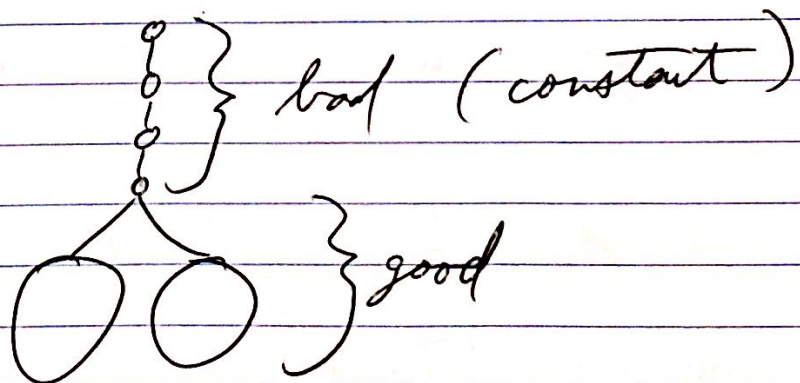 bad (constant)
good